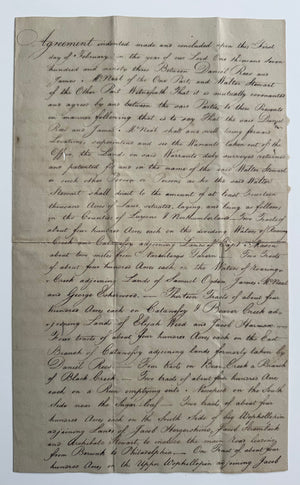 Agreement indented made and concluded upon this First
day of February in the year of our Lord One thousand Seven
hundred and ninety three Between Daniel Rees and
James McNeal of the One Part, and Walter Stewart
of the Other Part Witnesseth That it is mutually covenanted
and agreed by and between the said Parties to these Presents
in manner following that is to say That the said Daniel
Rees and James McNeal shall and will bring forward
Locations, superintend and see the Warrants taken out of the
Office, the Lands on said Warrants duly surveyed returned
and patented for and in the name of the said Walter Stewart
or such other Person or Persons as he the said Walter
Stewart shall direct to the amount of at least
thousand Acres of Land, situate, laying and being as follows,
in the Counties of Luzerne & Northumberland Two Tracts of
about four hundred Acres each on the dividing Waters of
Creek and Catawissy adjoining Lands of
about two miles from Tavern Two Tracts
of about four hundred Acres each on the Waters of
Creek adjoining Lands of Samuel Ogden James McNeal
and George Thirteen Tracts of about four
hundred Acres each on Catawissy & Beaver Creek ad-
joining Lands of Elijah Weed and Jacob Harman
Four tracts of about four hundred Acres each on the East
Branch of Catawissy adjoining lands formerly taken by
Daniel Rees Four tracts on Bear Creek a Branch
of Black Creek Two tracts of about four hundred Acres
each on a Run emptying into on the South
Side near the Two tracts of about four
hundred Acres each on the South Side of big
adjoining Lands of Jacob
and Archibald Stewart, to include the main Road leading
from Berwick to Philadelphia One Tract of about four
hundred Acres on the Upper adjoining Jacob